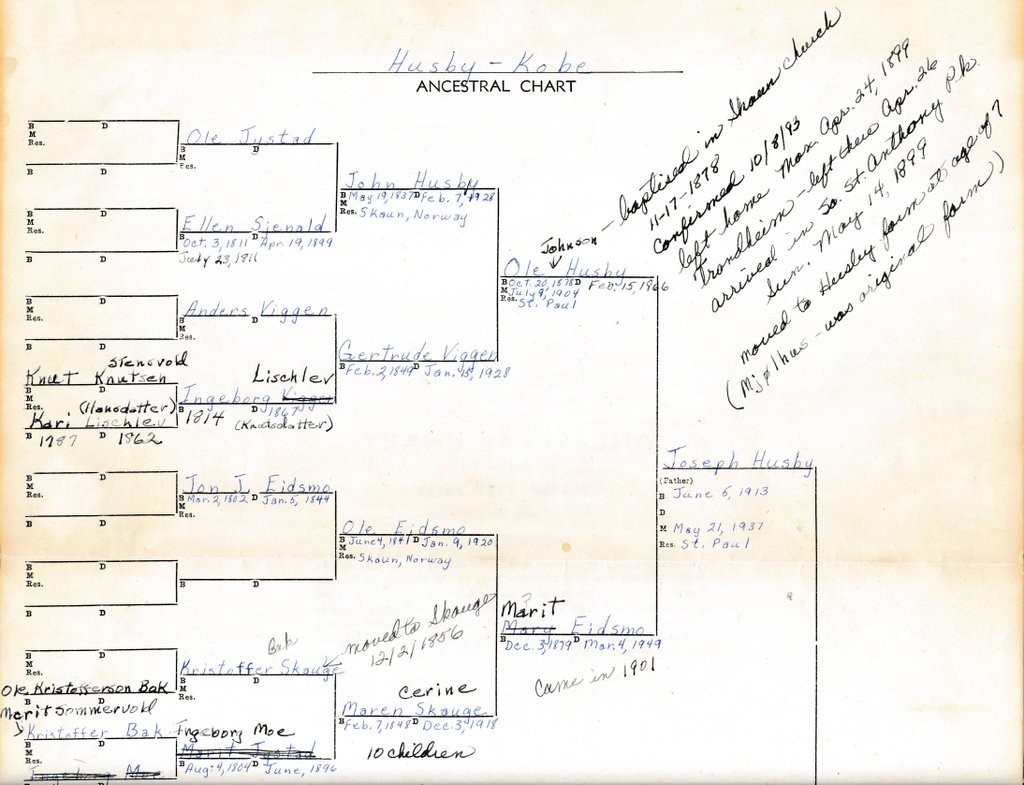 Husby - Kobe
ANCESTRAL CHART
Johnson - baptised in Skaun church
11-17-1878
Confirmed 10/8/93
left home Mon. Apr. 24, 1899
Trondheim - left there Apr. 26
arrived in So. St. Anthony Pk.
Sun. May 14, 1899
moved to Husby farm at age of 7
(Mjølhus - was original farm)
B D
M
Res.
B D
Ole Tystad
B D
M
Res.
B D
M
Res.
B D
Ellen Sjenald
B Oct. 3, 1811 D Apr. 19, 1899
July 23, 1811
John Husby
B May 19, 1837 D Feb. 7, 1928
M
Res. Skaun, Norway
B D
M
Res.
B D
Anders Viggen
B D
M
Res.
Stensvold
Knut Knutsen
B D
M
Res.
(Hansdatter)
Kari Lischlev
B 1787 D 1862
Lischlev
Ingeborg Viggen
B 1814 D 1867
(Knutsdatter)
Gertrude Viggen
B Feb. 2, 1849 D Jan. 15, 1928
Ole Husby
B Oct. 20, 1878 D Feb. 15, 1966
M July 9, 1904
Res. St. Paul
B D
M
Res.
B D
Jon J. Eidsmo
B Mar. 2, 1802 D Jan. 5, 1844
M
Res.
B D
M
Res.
B D
B D
Ole Eidsmo
B June 4, 1841 D Jan. 9, 1920
M
Res. Skaun, Norway
B D
M
Res.
Ole Kristofferson Bak
B D
Bak
Kristoffer Skauge
B D
M
Res.
moved to Skauge
12/2/1856
Marit Sommervold
Kristoffer Bak
B D
M
Res.
Ingeborg Moe
B D
Ingeborg Moe
Marit Tystad
B Aug. 4, 1804 D June, 1896
Cerine
Maren Skauge
B Feb. 7, 1848 D Dec. 3, 1918
10 children
?
Marit
Mary Eidsmo
B Dec. 3, 1879 D Mar. 4, 1949
Came in 1901
Joseph Husby
(Father)
B June 6, 1913
D
M May 21, 1937
Res. St. Paul